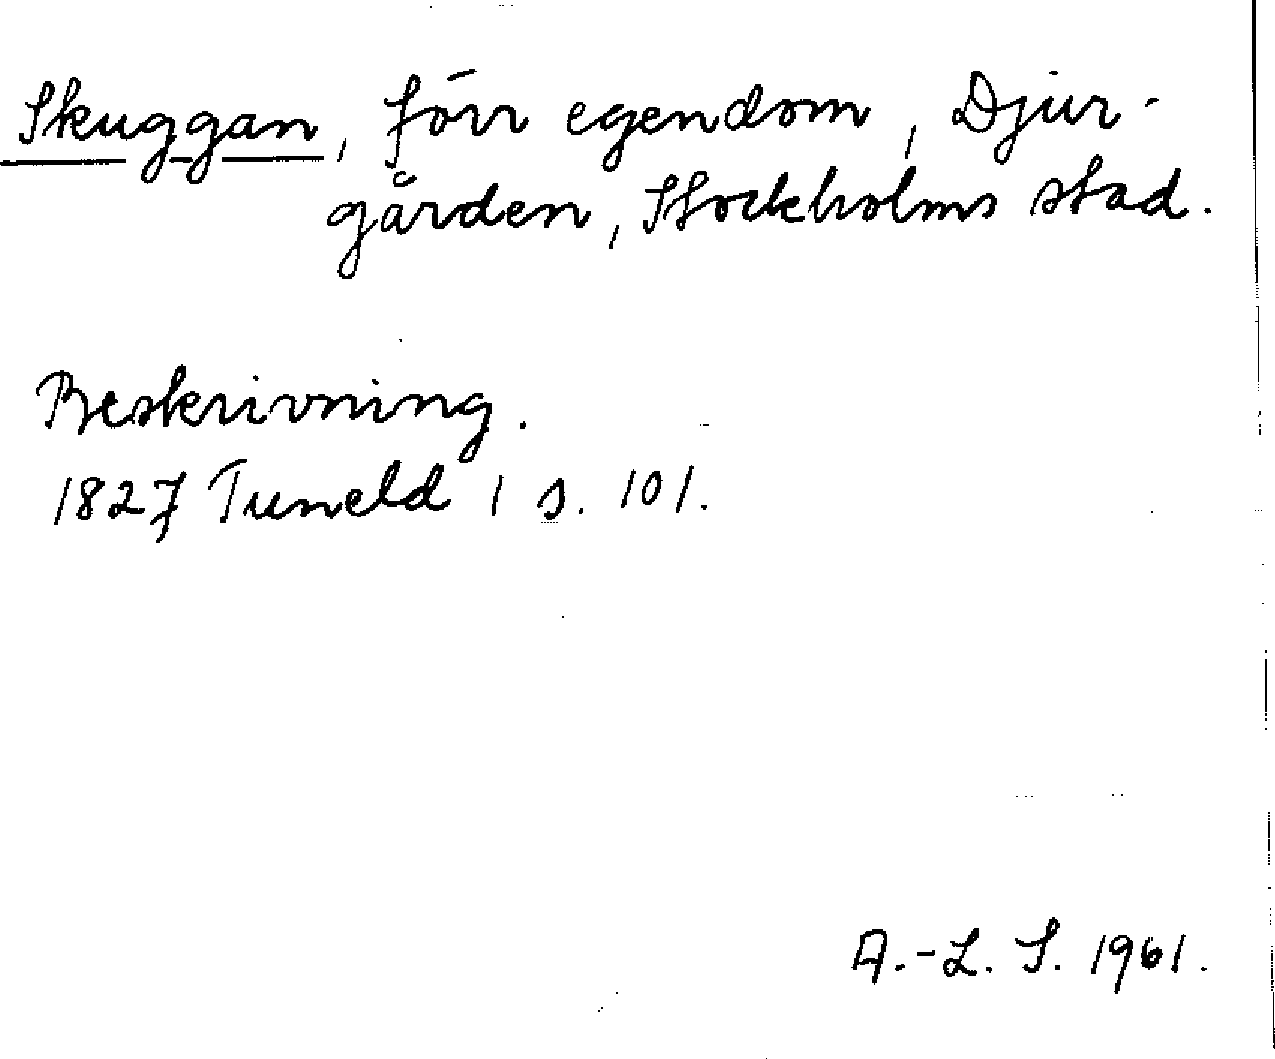 Skuggan, förr egendom, Djur-
gården, Stockholms stad.
Beskrivning.
1827 Tuneld 1 s. 101.
A.-L. S. 1961.